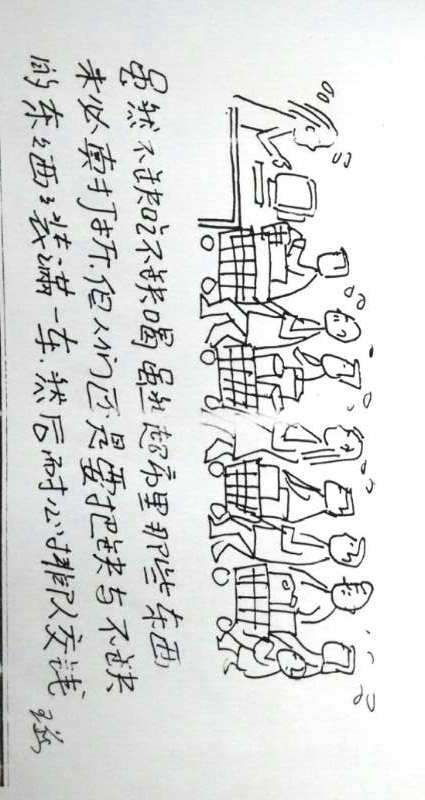 虽然不缺吃不缺喝 虽然超市里那些东西
未必真打折.但人们还是要把缺与不缺
的东东西西装满一车.然后耐心排队交钱